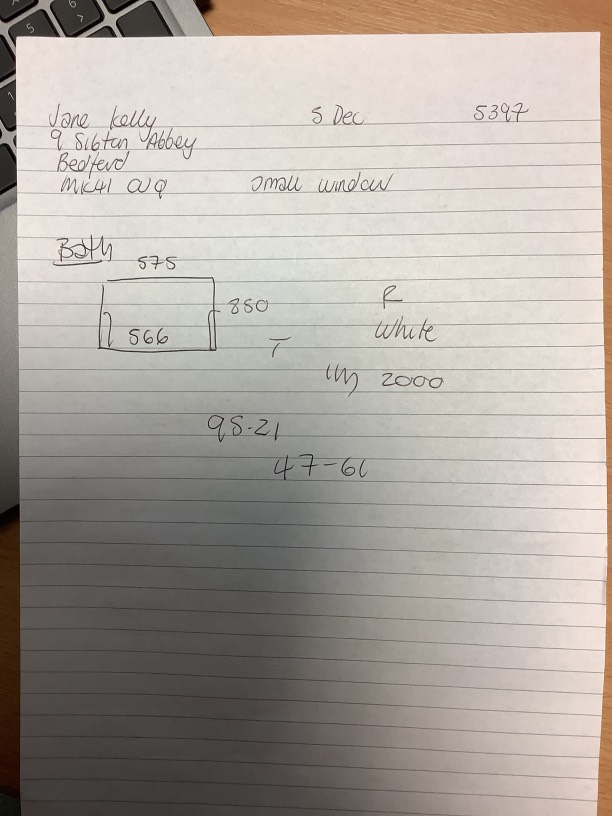 Jane Kelly 5 Dec 5397
9 Sibton Abbey
Bedford
MK41 small window
Bath
575
850 R
566 White
T
2000
95-21
47-60